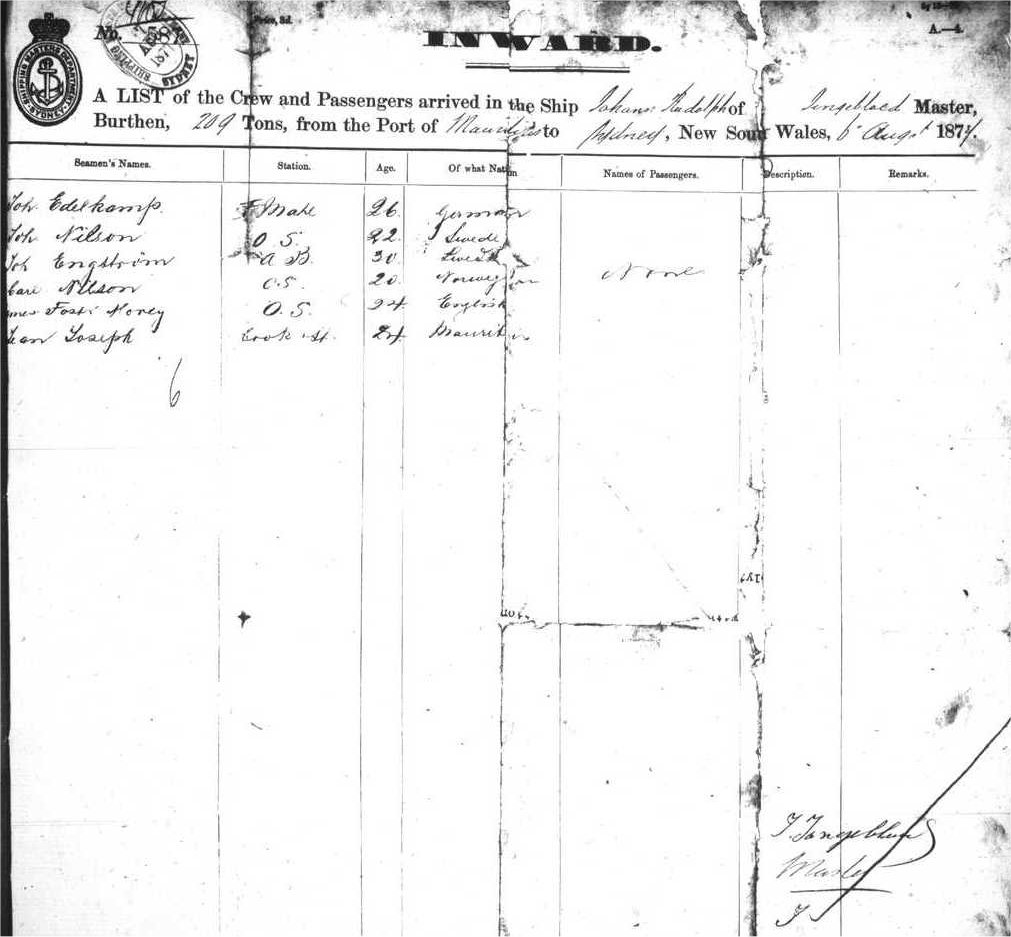 No. 58
Price, 3d.
A.—4.
SHIPPING MASTERS DEPARTMENT SYDNEY
INWARD.
A LIST of the Crew and Passengers arrived in the Ship Johann Rudolph of Master,
Burthen, 209 Tons, from the Port of Mauritius to Sydney, New South Wales, 6 Augst 1874.
Seamen's Names. Station. Age. Of what Nation Names of Passengers. Description. Remarks.
Joh. Edelkamp. Mate 26. German
Joh Nilson O. S. 22. Swede
Joh Engström A B. 30 Swede None
Carl Nilson O.S. 20. Norwegian
James Fost. O. S. 24 English
Jean Joseph Cook St. 24
6
Master